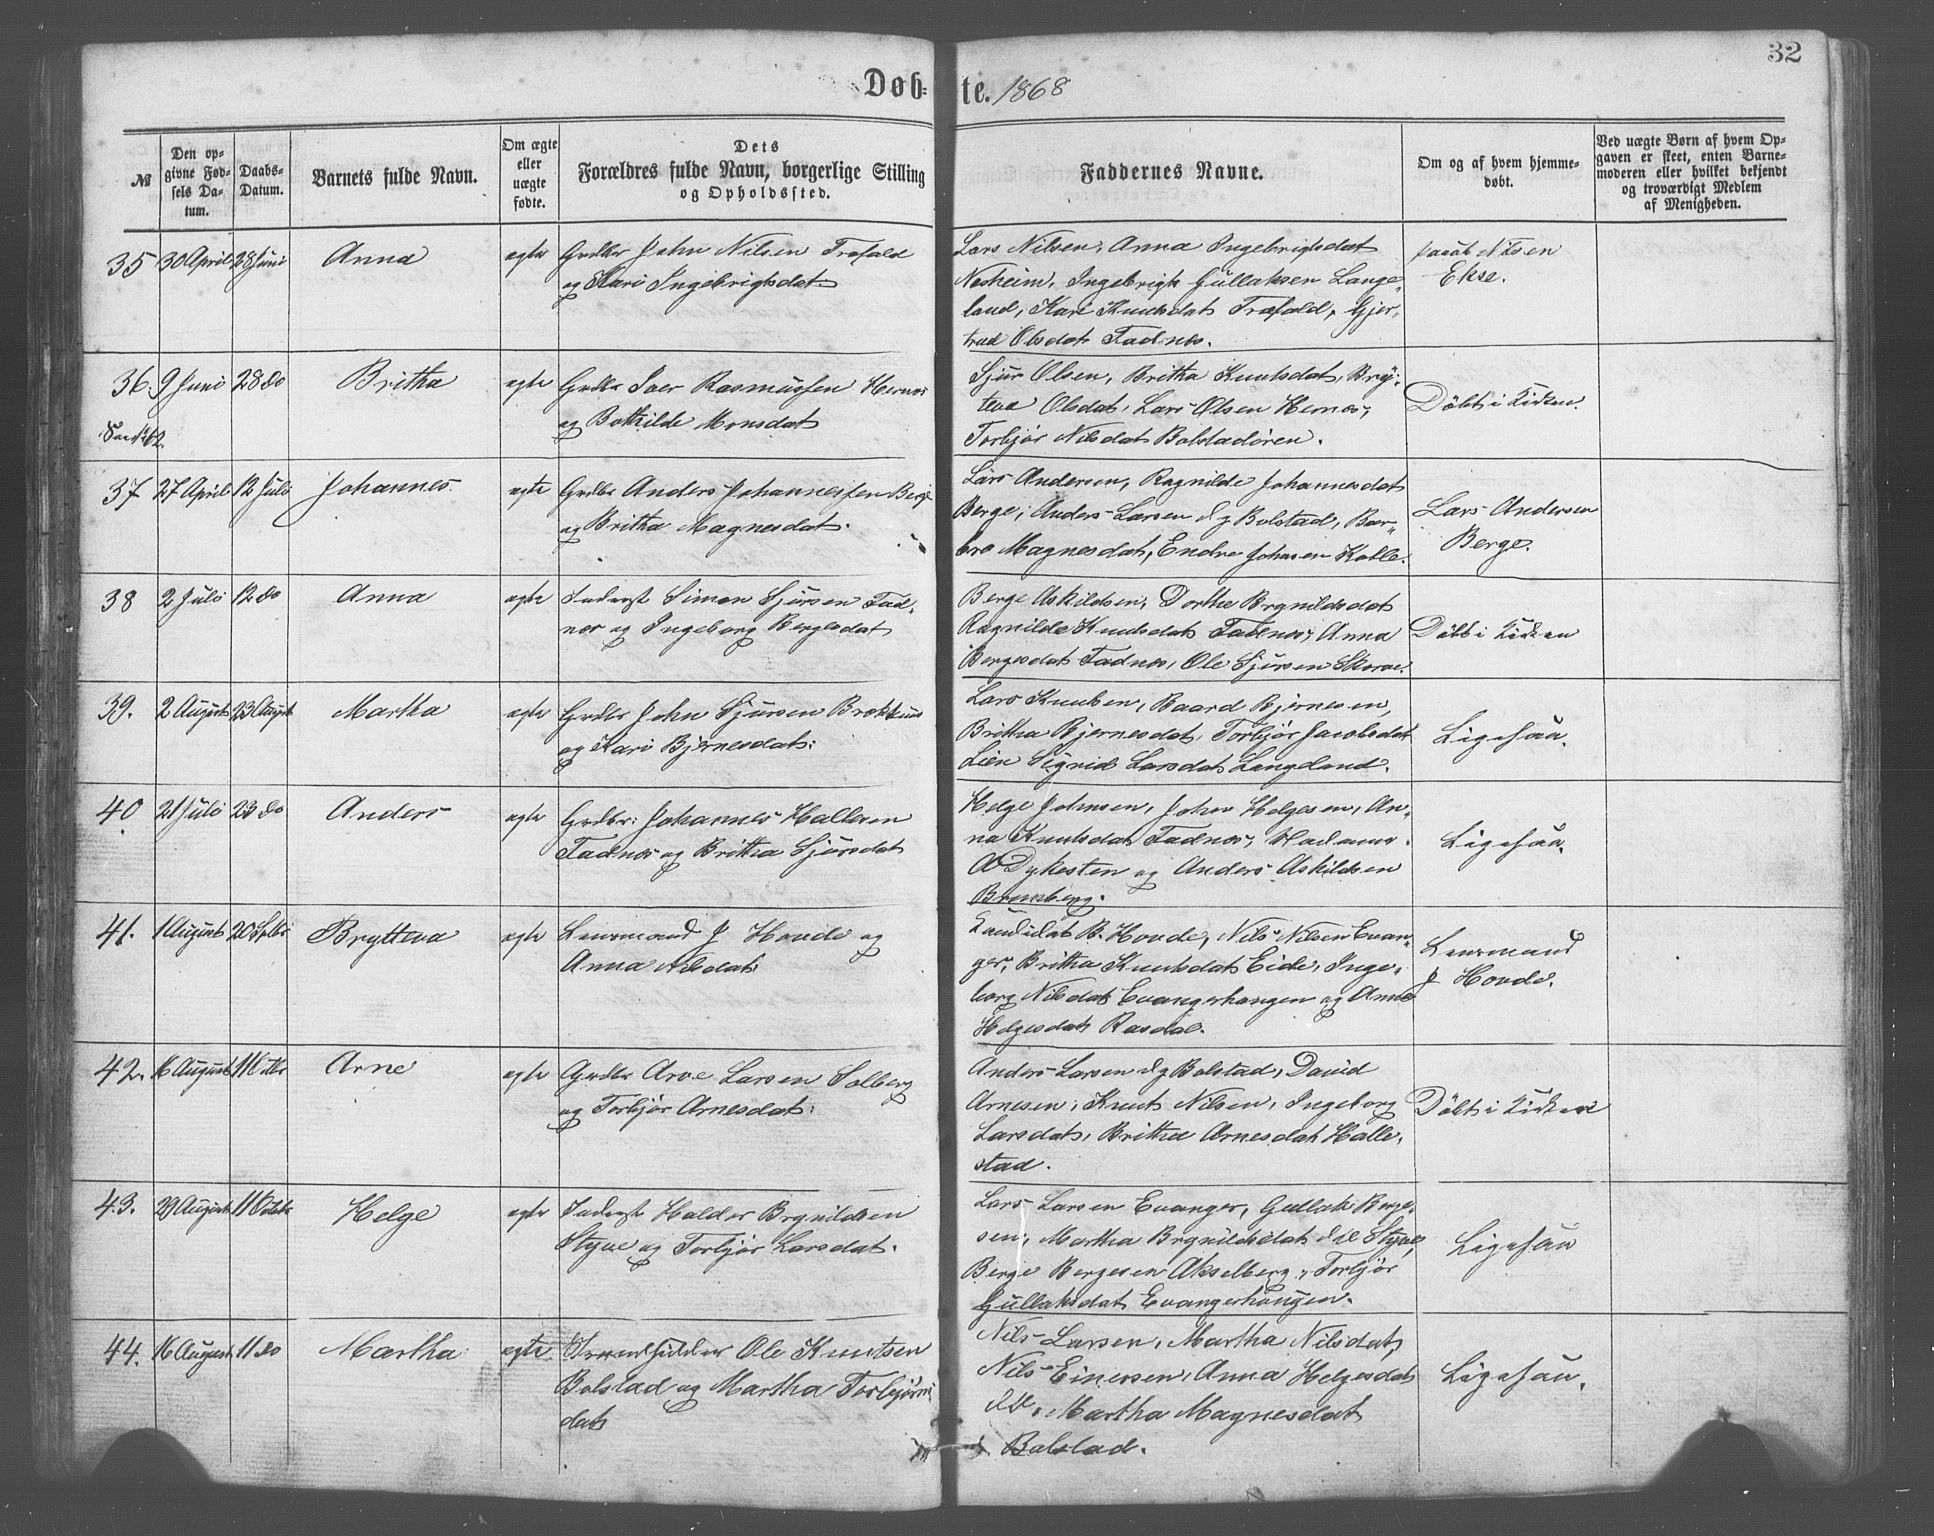 32
Døb=te. 1868
№
Den op-
givne Fød-
sels Da-
tum.
Daabs-
Datum.
Barnets fulde Navn.
Om ægte
eller
uægte
fødte.
Dets
Forældres fulde Navn, borgerlige Stilling
og Opholdssted.
Faddernes Navne.
Om og af hvem hjemme-
døbt.
Ved uægte Børn af hvem Op-
gaven er skeet, enten Barne-
moderen eller hvilket bekjendt
og troværdigt Medlem
af Menigheden.
35 30 April 28 Juni Anna ægte Grdbr John Nilsen Træfald
og Kari Ingebrigtsdat
Lars Nilsen, Anna Ingebrigtsdat
Nesheim, Ingebrigt Gullaksen Lange-
land, Kari Knutsdat Træfald, Gjer-
trud Olsdat Fadnes.
Jacob Nilsen
Ekse.
36. 9 Juni 28 do Britha ægte Grdbr Iver Rasmussen Hernes
og Bothilde Monsdat
Sjur Olsen, Britha Knutsdat, Bry-
teva Olsdat, Lars Olsen Hernes,
Torbjør Nilsdat Bolstadøren.
Døbt i Kirken.
37 27 April 12 Juli Johannes ægte Grdbr Anders Johannessen Berge
og Britha Magnesdat.
Lars Andersen, Ragnilde Johannesdat
Berge, Anders Larsen Bolstad, Bar-
bro Magnesdat, Endre Johnsen Kolle.
Lars Andersen
Berge.
38 2 Juli 12 do Anna ægte Inderst Simon Sjursen Fad-
nes og Ingeborg Bergesdat
Berge Askildsen, Dorthe Brynildsdat
Ragnilde Knutsdat Fadnes, Anna
Bergesdat Fadnes, Ole Sjursen Skorve.
Døbt i Kirken
39. 2 August 23 August Martha ægte Grdbr John Sjursen Brekkhus
og Kari Bjørnesdat.
Lars Knutsen, Baard Bjørnesen,
Britha Bjørnesdat, Torbjør Jacobsdat
Lien Sigrid Larsdat Langeland.
Ligesaa.
40. 21 Juli 23 do Anders ægte Grdbr: Johannes Hallsen
Fadnes og Britha Sjursdat
Helge Johnsen, John Helgesen, An-
na Knutsdat Fadnes, Madame
Dykesten og Anders Askildsen
Brunborg.
Ligesaa.
41. 1 August 20 Septbr Brytteva ægte Lensmand J Hovde og
Anna Nilsdat
Kandidat B. Hovde, Nils Nilsen Evan-
ger, Britha Knutsdat Eide, Inge-
borg Nilsdat Evangerhaugen og Anna
Helgesdat Rasdal.
Lensmand
J Hovde.
42. 16 August 11 Octbr Arne ægte Grdbr Arve Larsen Solberg
og Torbjør Arnesdat.
Anders Larsen Bolstad, David
Arnesen, Knut Nilsen, Ingeborg
Larsdat, Britha Arnesdat Halle-
stad.
Døbt i Kirken
43. 29 August 11 Octbr Helge ægte Inderst Haldor Brynildsen
Styve og Torbjør Larsdat.
Lars Larsen Evanger, Gullak Berge-
sen, Martha Brynildsdat Styve,
Berge Bergesen Akselberg, Torbjør
Gullaksdat Evangerhaugen.
Ligesaa
44. 16 August 11 do Martha ægte Ole Knutsen
Bolstad og Martha Torbjørns-
dat
Nils Larsen, Martha Nilsdat,
Nils Einersen, Anna Helgesdat
do, Martha Magnesdat
Bolstad.
Ligesaa.